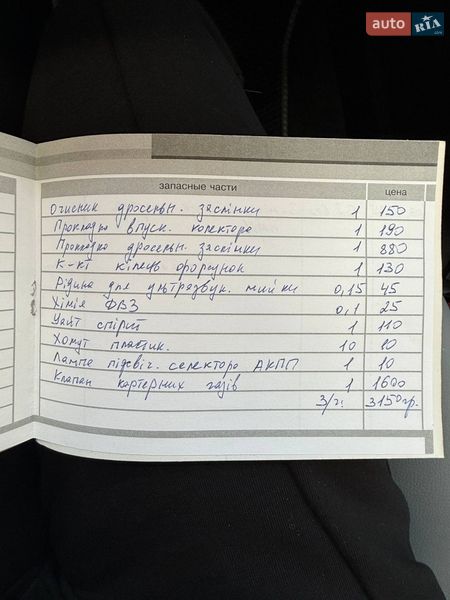 auto RIA .com
запасные части цена
Очисник дросельн. заслінки 1 150
Прокладка впуск. колектора 1 190
Прокладка дросельн. заслінки 1 880
К-кт кілець форсунок 1 130
Рідина для ультразвук. мийки 0,15 45
Хімія ФВЗ 0,1 25
Уайт спірит 1 110
Хомут пластик. 10 10
Лампа підсвіч. селектора АКПП 1 10
Клапан картерних газів 1 1600
З/ч: 3150гр.